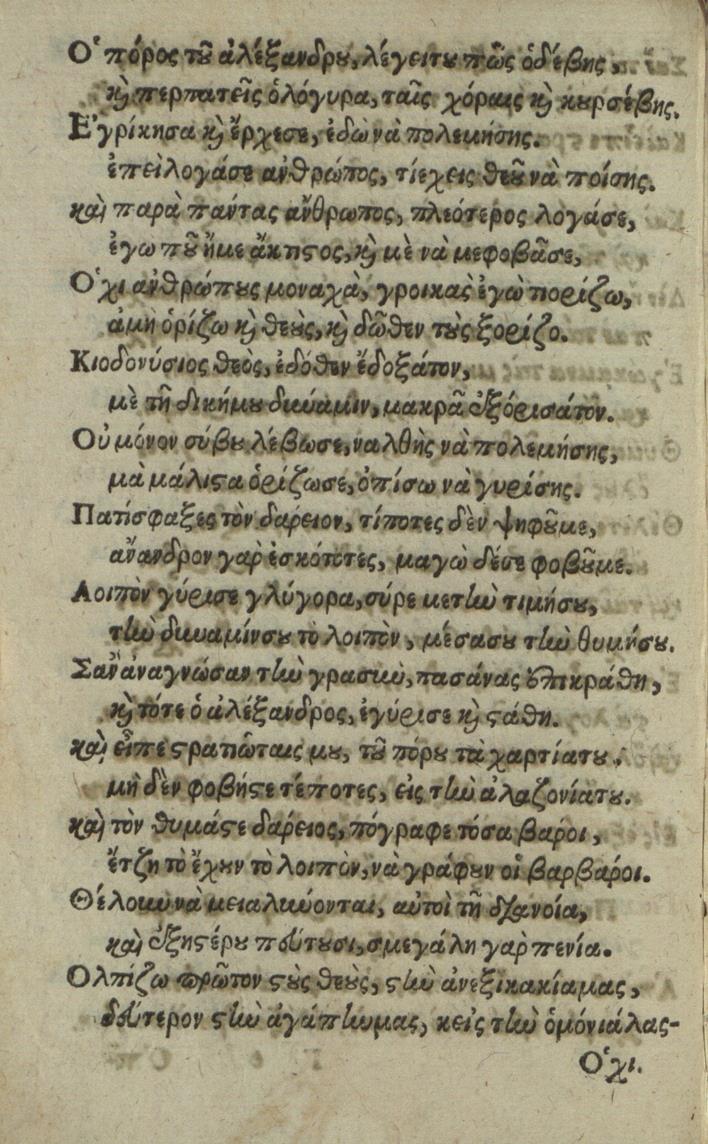 Ὁ πόρος τοῦ ἀλέξανδρου, λέγειτου πῶς ὁδέβης,
καὶ περπατεῖς ὁλόγυρα, ταῖς χόραις καὶ κουρσέβης.
Ἐγρίκησα καὶ ἔρχεσε, ἐδὼ νὰ πολεμήσης.
ἐπεὶ λογάσε ανθρώπος, τίεχεις θεοῦ νὰ ποίσης.
καὶ παρὰ παντας ανθρωπος, πλεότερος λογάσε,
ἐγω ποῦ ἤμε ἄκτιστος, καὶ μὲ νὰ μεφοβᾶσε,
Ὄχι ανθρώπους μοναχὰ, γροικας ἐγὼ πορίζω,
ἀμὴ ὁρίζω καὶ θεοὺς, καὶ δῶθεν τοὺς ξορίζο.
Κιοδονύσιος θεὸς, ἐδόθεν ἔδοξάτον,
μὲ τῆ δικήμου δυύαμιν, μακρᾶ ἐξόρισάτον.
Οὐ μόνον σύβου λέβωσε, ναλθῆς νὰ πολεμήσης,
μὰ μάλιστα ὁρίζωσε, ὀπίσω νὰ γυρίσης.
Πατίσφαξες τὸν δαρειον, τίποτες δὲν ψηφοῦμε,
αν̓ανδρον γαρ ἐσκότοτες, μαγὼ δέσε φοβοῦμε.
Λοιπὸν γύρισε γλύγορα, σύρε μετὴν τιμήσου,
τὴν δυναμίνσου το λοιπὸν, μέσασου τὴν θυμήσου.
Σαν ἀναγνώσαν τὴν γραφὴν, πασάνας ἐπικράθη,
καὶ τότε ὁ ἀλέξανδρος, ἐγύρισε καὶ στάθη.
καὶ εἶπε στρατιῶταις μου, τοῦ πόρου τὰ χαρτίατου.
μὴ δὲν φοβήστε τέποτες, εἰς τὴν ἀλαζονίατου.
καὶ τὸν θυμάστε δαρειος, πόγραφε τόσα βαροι,
ἔτζη τὸ ἔχουν τὸ λοιπὸν, νὰ γράφουν οἱ βαρβαροι.
Θέλουν νὰ μειαλυύονται, αὐτοὶ τῆ διανοία,
καὶ ἐξηστέρου πεύτουσι, σμεγάλη γαρ πενία.
Ολπίζω πρῶτον στοὺς θεοὺς, στὴν ἀνεξικακίαμας,
δεύτερον στὴν ἀγάπημας, κεἰς τὴν ὁμόνιάλας-
Ὄχι.